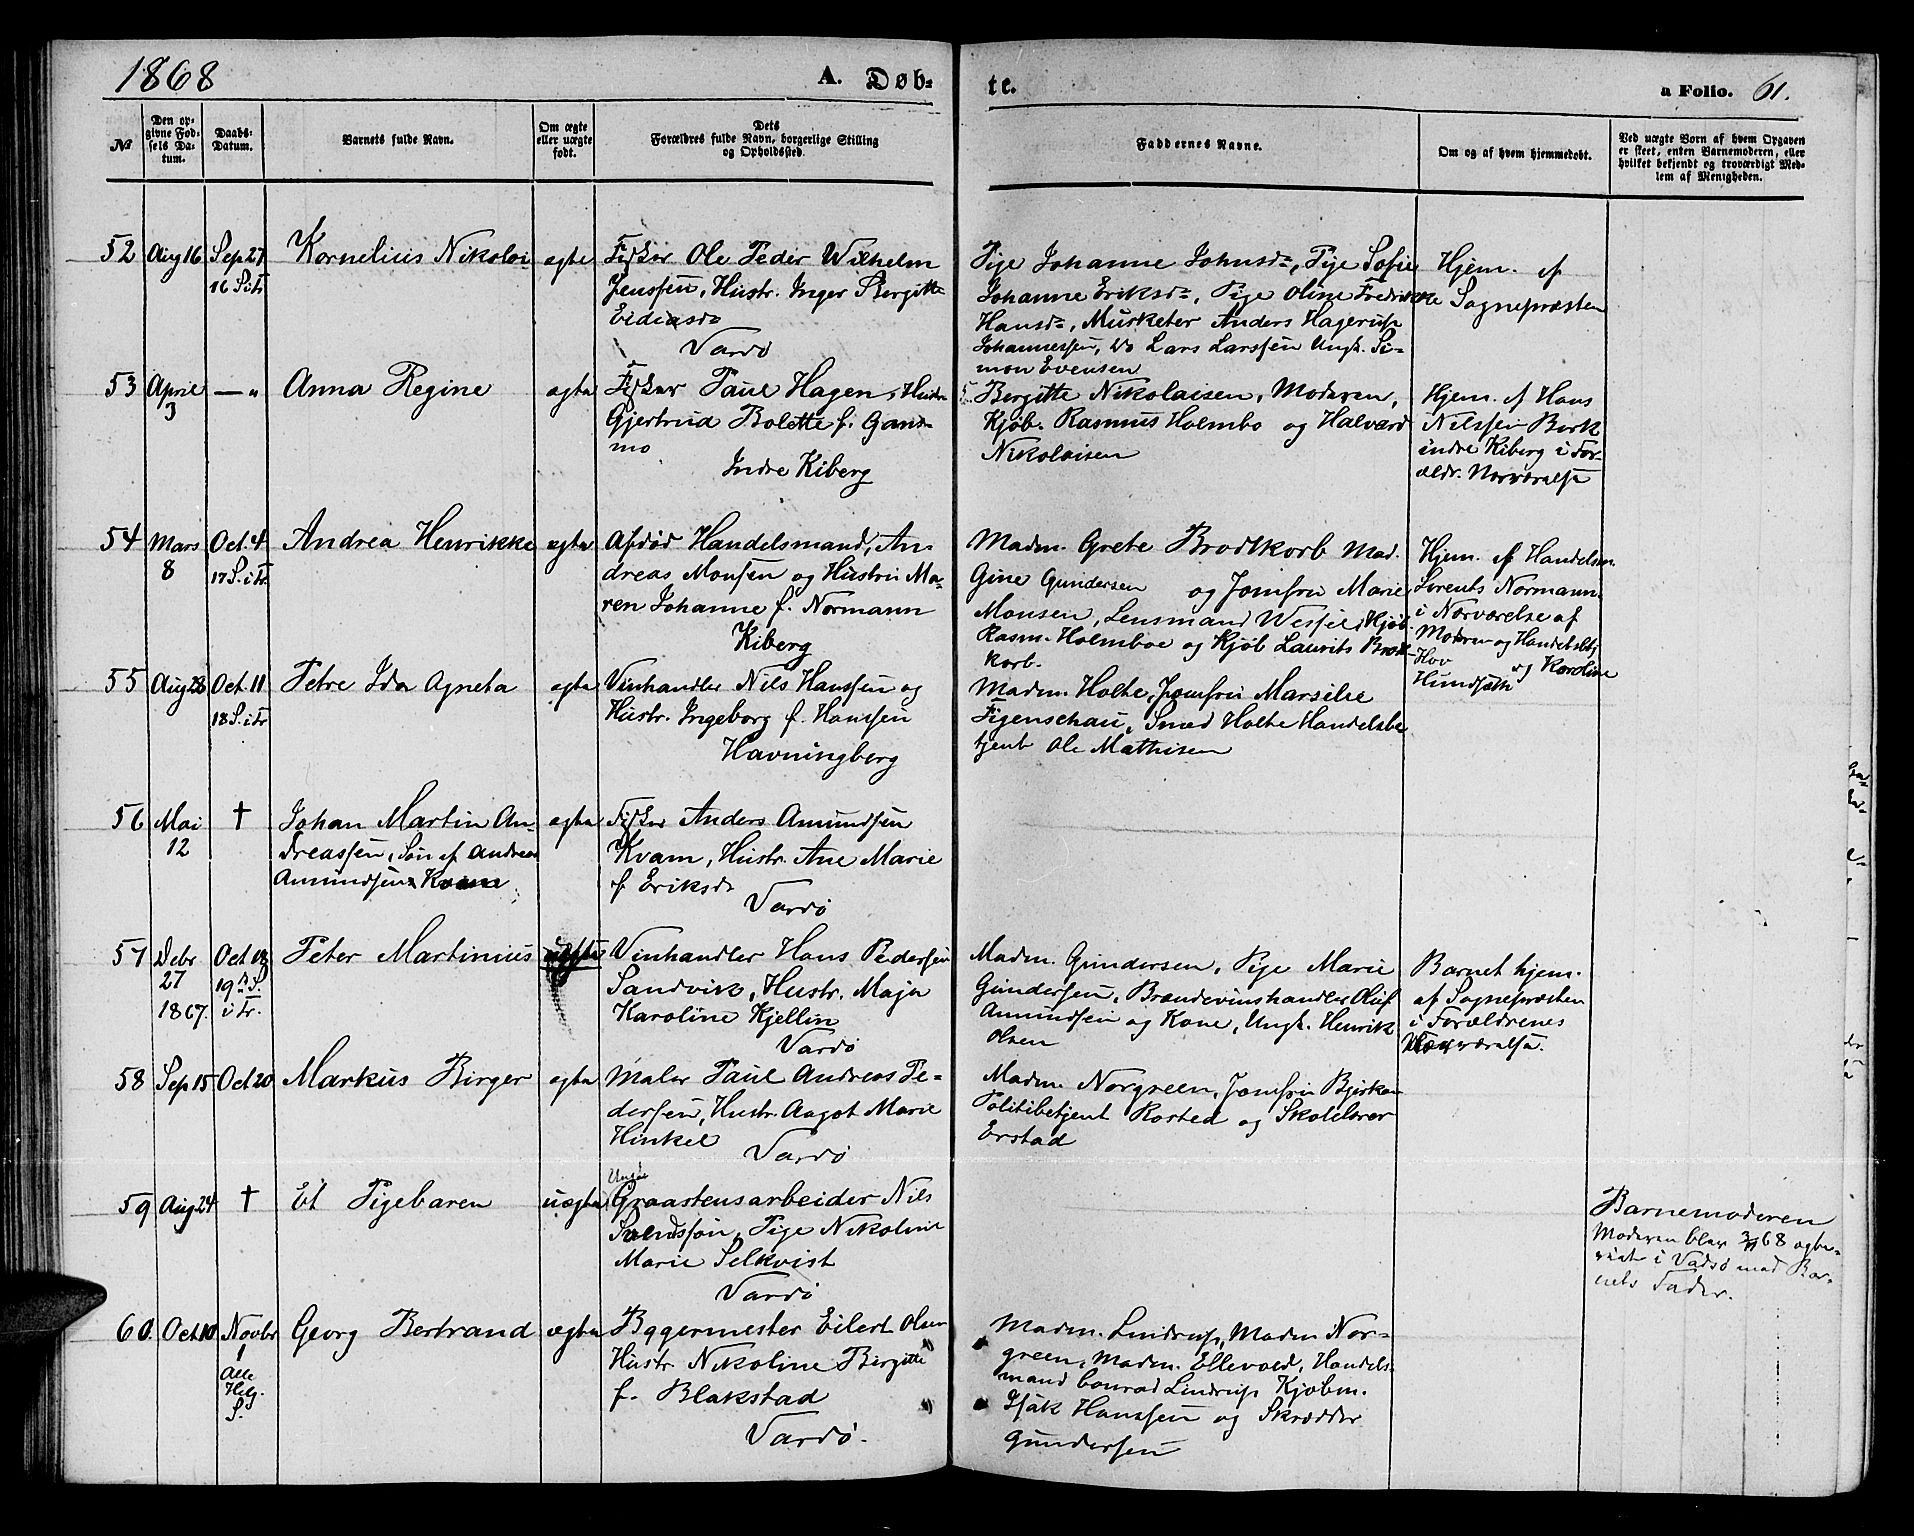 1868
A. Døb-
te.
a Folio. 61.
No
Den op-
givne Fød-
sels Da-
tum.
Daabs-
Datum.
Barnets fulde Navn.
Om ægte
eller uægte
født.
Dets
Forældres fulde Navn, borgerlige Stilling
og Opholdssted.
Faddernes Navne.
Om og af hvem hjemmedøbt.
Ved uægte Børn af hvem Opgaven
er skeet, enten Barnemoderen, eller
hvilket bekjendt og troværdigt Med-
lem af Menigheden.
52 Aug 16 Sep 27 Kornelius Nikolai ægte Fisker Ole Peder Wilhelm
16 S. i Tr
Jenssen, Hustr. Inger Bergitte
Eidiasdr
Vardø
Pige Johanne Johnsdr, Pige Sofie
Johanne Eriksdr, Pige Oline Fredrikke
Hansdr, Musketer Anders Hagerup
Johannessen, do Lars Larssen Ungk. Si-
mon Evensen
Hjem. af
Sognepræsten
53 April — " Anna Regine ægte Fisker Paul Hagen, Hustr
3
Gjertrud Bolette f. Gand-
mo
Indre Kiberg
Bergitte Nikolaisen, Moderen,
Kjøb. Rasmus Holmbo og Halvard
Nikolaisen
Hjem. af Hans
Nilssen Bork
indre Kiberg i For-
ældr. Nærværelse
54 Mars Oct. 4 Andrea Henrikke ægte Afdød Handelsmand, An-
8 17 S. i Tr
dreas Monsen og Hustru Ma-
ren Johanne f. Normann
Kiberg
Madm. Grete Brodtkorb Mad.
Gine Gundersen og Jomfru Marie
Monsen, Lensmand Wessel, Kjøb.
Rasm. Holmboe og Kjøb Laurits Brodt-
korb.
Hjem. af Handelsm.
Lorents Normann
i Nærværelse af
Moderen og Handelsbtj
Hov og Karoline
Hundseth
55 Aug 28 Oct. 11 Petre Ida Agneta ægte Vinhandler Nils Hanssen og
18 S. i Tr
Hustr. Ingeborg f. Hanssen
Havningberg
Madm. Holte, Jomfru Marselie
Figenschau, Smed Holte Handelsbe
tjent Ole Mathisen
56 Mai † Johan Martin An- ægte Fisker Anders Amundsen
12
dreassen, Søn af Andreas
Amundsen Kvam
Kvam, Hustr. Ane Marie
f Eriksdr
Vardø
57 Debr Oct 18 Peter Martinius Vinhandler Hans Pedersen
27 19de S.
1867. i Tr.
Sandvik, Hustr. Maja
Karoline Kjellin
Vardø
Madm. Gundersen, Pige Marie
Gundersen, Brændevinshandler Oluf
Amundsen og Kone, Ungk. Henrik
Olsen
Barnet hjem.
af Sognepræsten
i Forældrenes
Nærværelse.
58 Sep 15 Oct 20 Markus Birger ægte Maler Paul Andreas Pe-
dersen, Hustr. Aagot Marie
Hinkel
Vardø
Madm. Norgreen, Jomfru Bjerkan
Politibetjent Rosted og Skolelærer
Erstad
59 Aug 24 † Et Pigebarn uægte Graastensarbeider Nils
Ungk
Svendssøn, Pige Nikoline
Marie Selkvist
Vardø
Barnemoderen
Moderen blev 3/11 68 ægte-
viet i Vadsø med Bar-
nets Fader.
60. Oct 10 Novbr Georg Bertrand ægte Byggermester Eilert Olsen
1
Alle
Helg.
S.
Hustr Nikoline Birgitte
f. Blakstad
Vardø.
Madm. Lindrup, Madm Nor-
green, Madm. Ellevold, Handels
mand Conrad Lindrup Kjøbm.
Isak Hanssen og Skrædder
Gundersen